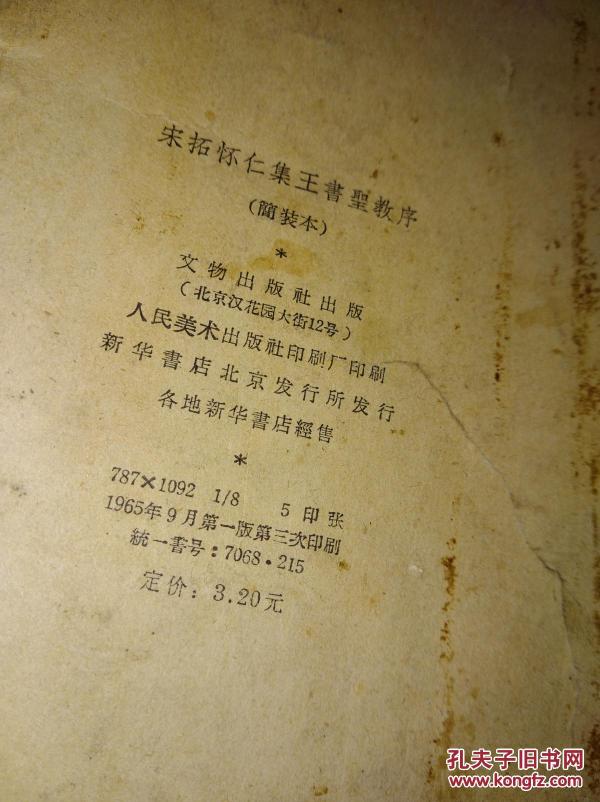 宋拓怀仁集王書聖教序
(簡装本)
*
文物出版社出版
(北京汉花园大街12号)
人民美术出版社印刷厂印刷
新华書店北京发行所发行
各地新华書店經售
*
787×1092 1/8 5印张
1965年9月第一版第三次印刷
統一書号:7068·215
定价:3.20元
孔夫子旧书网
www.kongfz.com